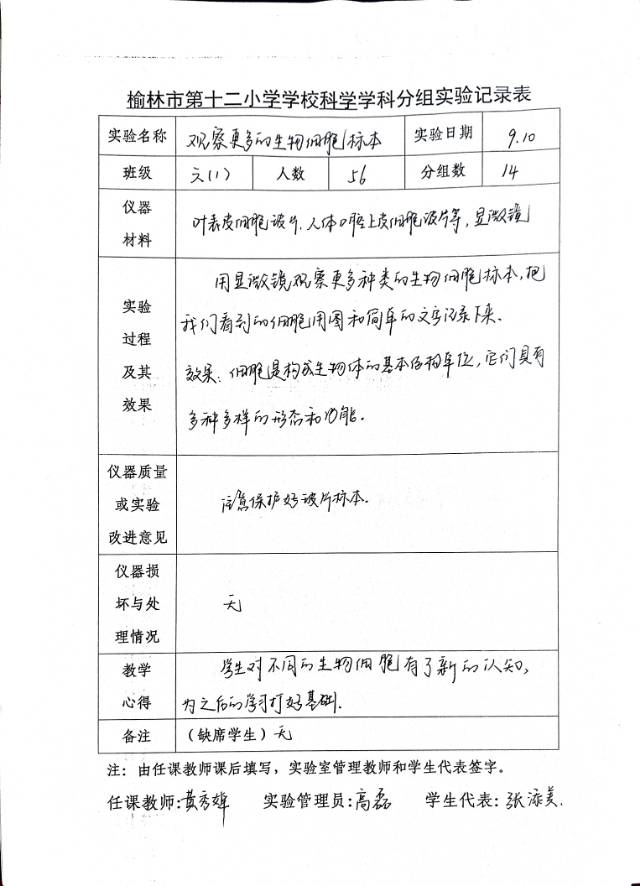 榆林市第十二小学学校科学学科分组实验记录表
实验名称 观察更多的生物细胞标本 实验日期 9.10
班级 六(1) 人数 56 分组数 14
仪器 材料 叶表皮细胞玻片、人体口腔上皮细胞玻片等,显微镜
实验 过程 及其 效果
用显微镜观察更多种类的生物细胞标本,把
我们看到的细胞用图和简单的文字记录下来.
效果:细胞是构成生物体的基本结构单位,它们具有
多种多样的形态和功能.
仪器质量 或实验 改进意见 注意保护好玻片标本.
仪器损 坏与处 理情况 无
教学 心得 学生对不同的生物细胞有了新的认知,
为之后的学习打好基础.
备注 (缺席学生)无
注:由任课教师课后填写,实验室管理教师和学生代表签字。
任课教师:黄秀 实验管理员:高磊 学生代表:张添美.